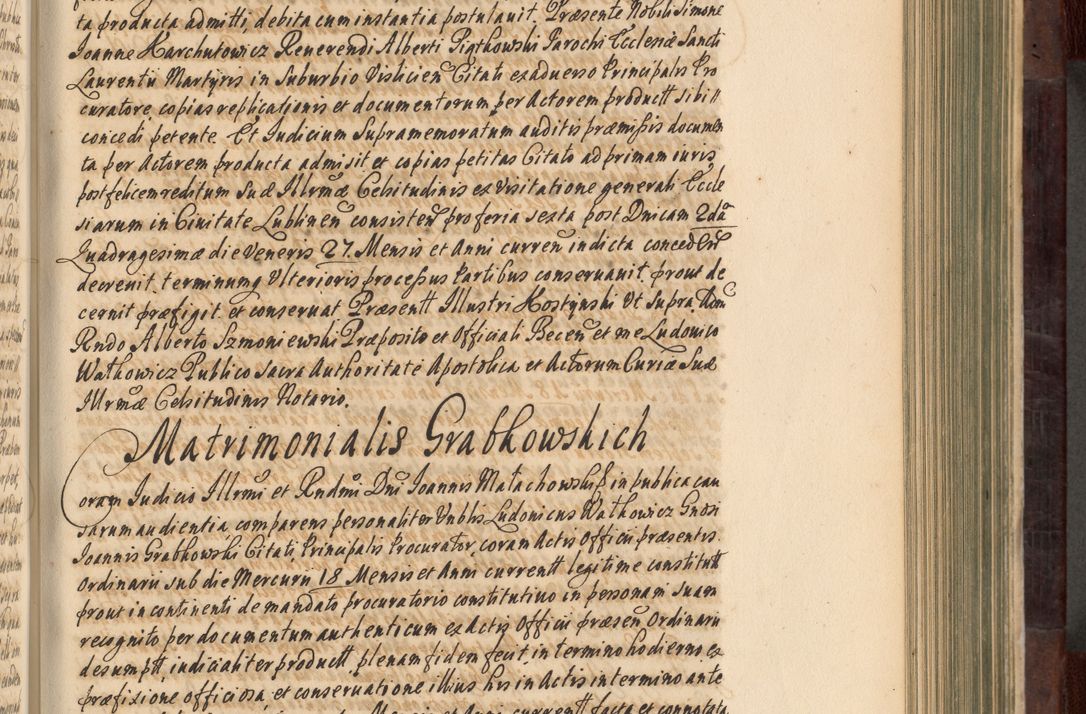 ta producta admitti, debita cum instantia postulauit. Præsente Nobili Simone
Joanne Karchutowicz Reuerendi Alberti Piątkowski Parochi Ecclesiæ Sancti
Laurentii Martyris in Suburbio Visliciẽn Citati ex aduerso Principalis Pro
curatore, copias replicationis et documentorum per Actorem productt sibi
concedi petente. Et Judicium Supramemoratum auditis præmissis documen
ta per Actorem producta admisit et copias petitas Citato ad primam iuris
post felicem reditum Suæ Illrmæ Celsitudinis ex Visitatione generali Eccle
siarum in Ciuitate Lublinẽn consistẽn pro feria sexta post Dnicam 2dã
Quadragesimæ die Veneris 27. Mensis et Anni curreñ indicta conced
decreuit. terminumq Vlterioris processus Partibus conseruauit prout de
cernit præfigit, et conseruat Præsentt Illustri Kostynski Vt Supra, Adm
Rndo Alberto Szmoniewski Præposito et Officiali Beceñ et me Ludouico
Watkowicz Publico Sacra Authoritate Apostolica et Actorum Curiæ Suæ
Illrmæ Celsitudinis Notario.
Matrimonialis Grabkowskich
Coram Judicio Illrmi et Rndmi Dni Joannis Małachowski in publica cau
sarum audientia comparens personaliter Vnblis Ludouicus Watkowicz Gnosi
Joannis Grabkowski Citati Principalis Procurator, coram Actis Officii præsentis
Ordinarii sub die Mercurii 18 Mensis et Anni currentt legitime constitutt
prout in continenti de mandato procuratorio constitutiuo in personam suam
recognito per documentum authenticum ex Actis Officii præseñ Ordinarii
desumptt, iudicialiter productt, plenam fidem fecit, in termino hodierno, ex
præfixione officiosa, et conseruatione illius his in Actis in termino ante
Mensis et Anni currentt facta et connotata